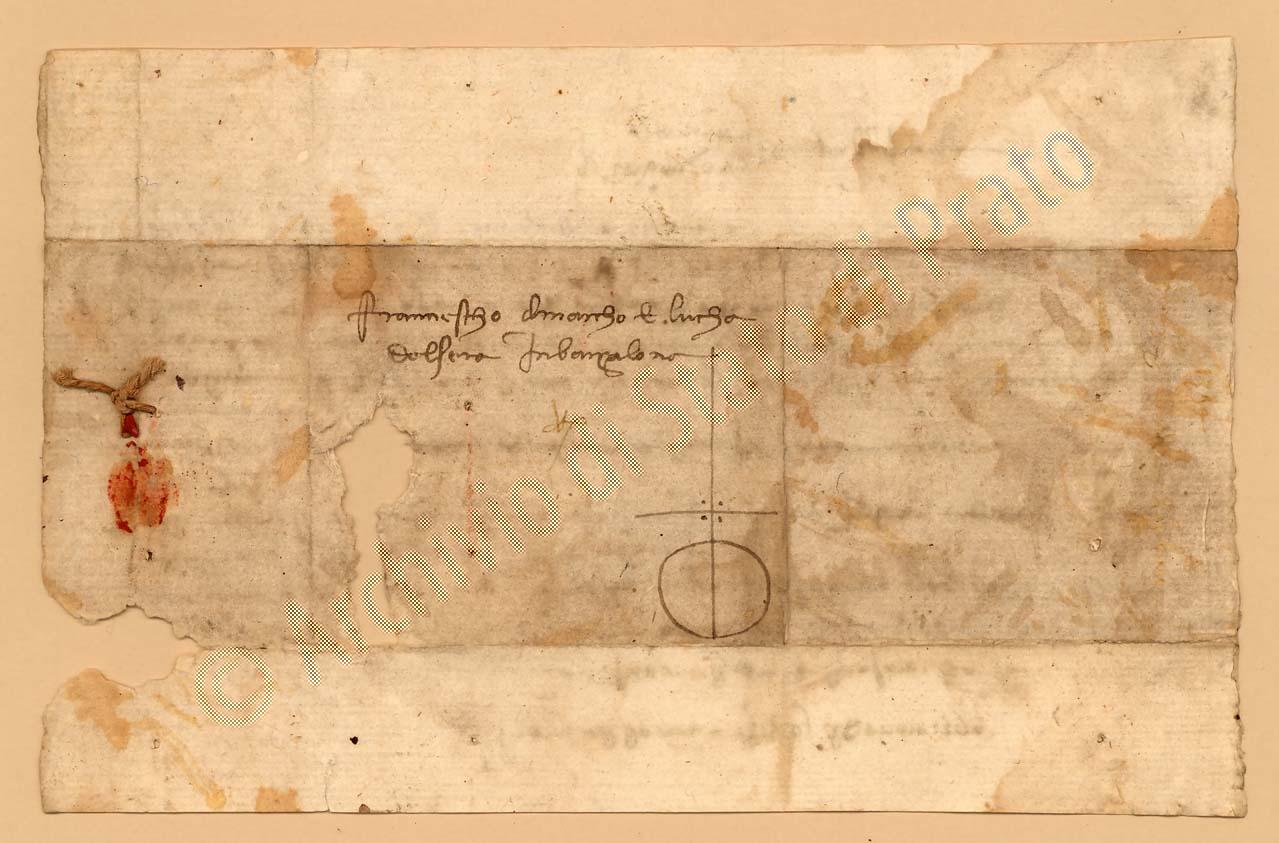 Franciescho dmarcho & lucha
delsera Inbarzalona
© Archivio di Stato di Prato